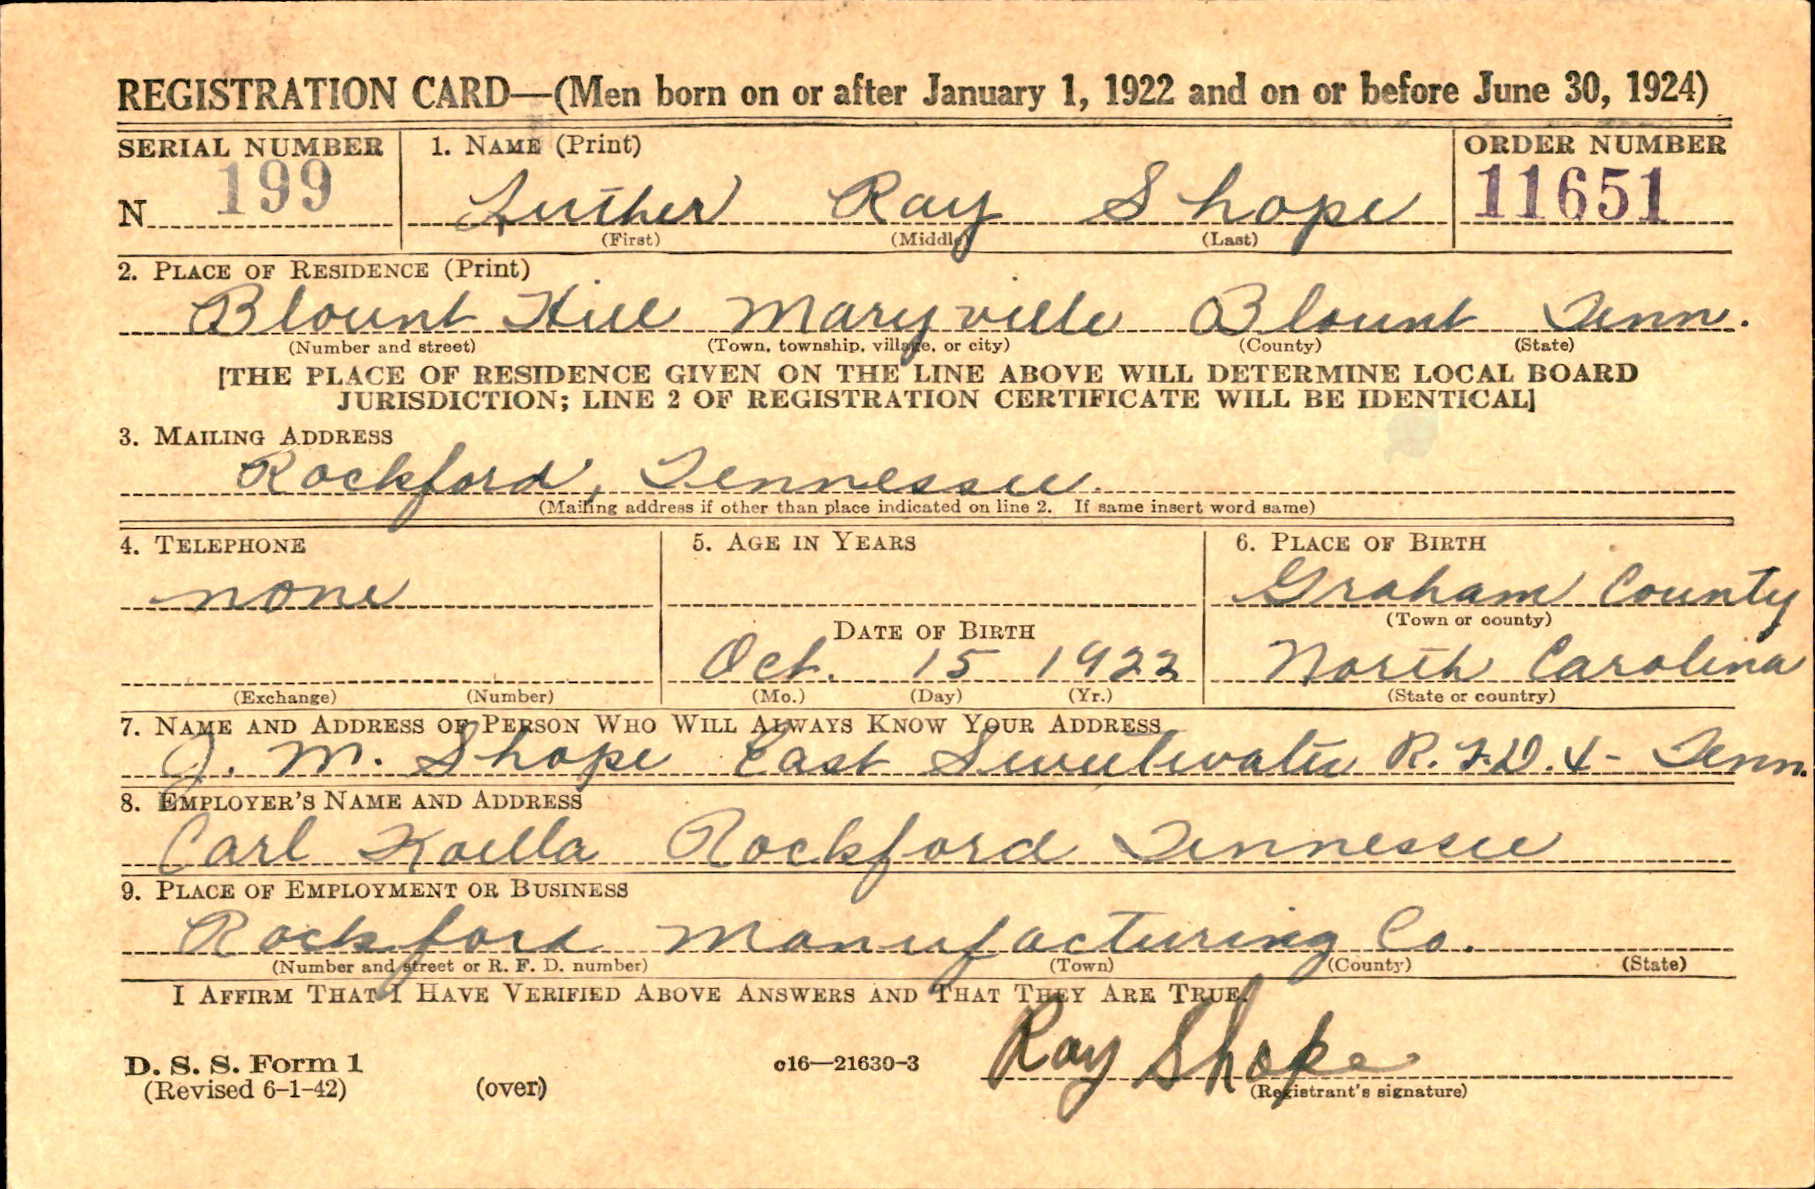 REGISTRATION CARD—(Men born on or after January 1, 1922 and on or before June 30, 1924)
SERIAL NUMBER 1. NAME (Print) ORDER NUMBER
N 199 Luther Ray Shope 11651
(First) (Middle) (Last)
2. PLACE OF RESIDENCE (Print)
Blount Hill Maryville Blount Tenn.
(Number and street) (Town, township, village, or city) (County) (State)
[THE PLACE OF RESIDENCE GIVEN ON THE LINE ABOVE WILL DETERMINE LOCAL BOARD
JURISDICTION; LINE 2 OF REGISTRATION CERTIFICATE WILL BE IDENTICAL]
3. MAILING ADDRESS
Rockford, Tennessee.
(Mailing address if other than place indicated on line 2. If same insert word same)
4. TELEPHONE 5. AGE IN YEARS 6. PLACE OF BIRTH
none Graham County
(Town or county)
DATE OF BIRTH
Oct. 15 1922 North Carolina
(Exchange) (Number) (Mo.) (Day) (Yr.) (State or country)
7. NAME AND ADDRESS OF PERSON WHO WILL ALWAYS KNOW YOUR ADDRESS
J. M. Shope East Sweetwater R.F.D. 4- Tenn.
8. EMPLOYER'S NAME AND ADDRESS
Carl Koella Rockford Tennessee
9. PLACE OF EMPLOYMENT OR BUSINESS
Rockford Manufacturing Co.
(Number and street or R. F. D. number) (Town) (County) (State)
I AFFIRM THAT I HAVE VERIFIED ABOVE ANSWERS AND THAT THEY ARE TRUE.
D. S. S. Form 1 c16—21630-3 Ray Shope
(Revised 6-1-42) (over) (Registrant's signature)